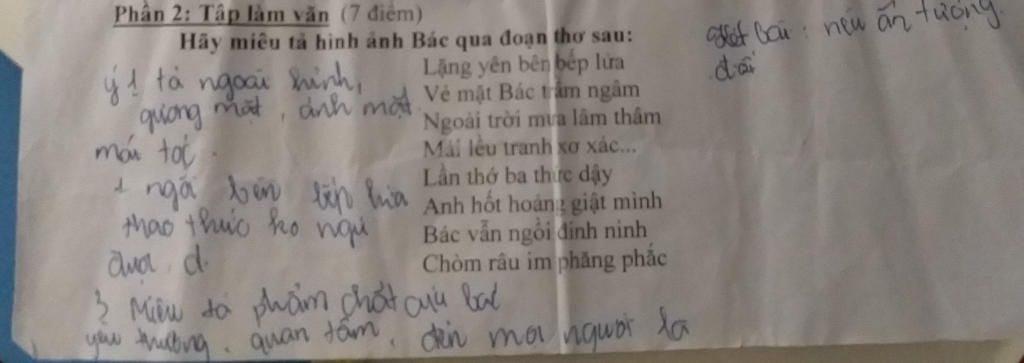 Phần 2: Tập làm văn (7 điểm)
Hãy miêu tả hình ảnh Bác qua đoạn thơ sau:
Lặng yên bên bếp lửa
Vẻ mặt Bác trầm ngâm
Ngoài trời mưa lâm thâm
Mái lều tranh xơ xác...
Lần thớ ba thức dậy
Anh hốt hoảng giật mình
Bác vẫn ngồi đinh ninh
Chòm râu im phăng phắc
ý 1 tả ngoài hình,
gương mặt, ánh mắt
mái tóc.
ngồi bên bếp lửa
thao thức ko ngủ
được
3 Miêu tả phẩm chất của bác
yêu thương, quan tâm, đến mọi người
kết bài: nêu ấn tượng